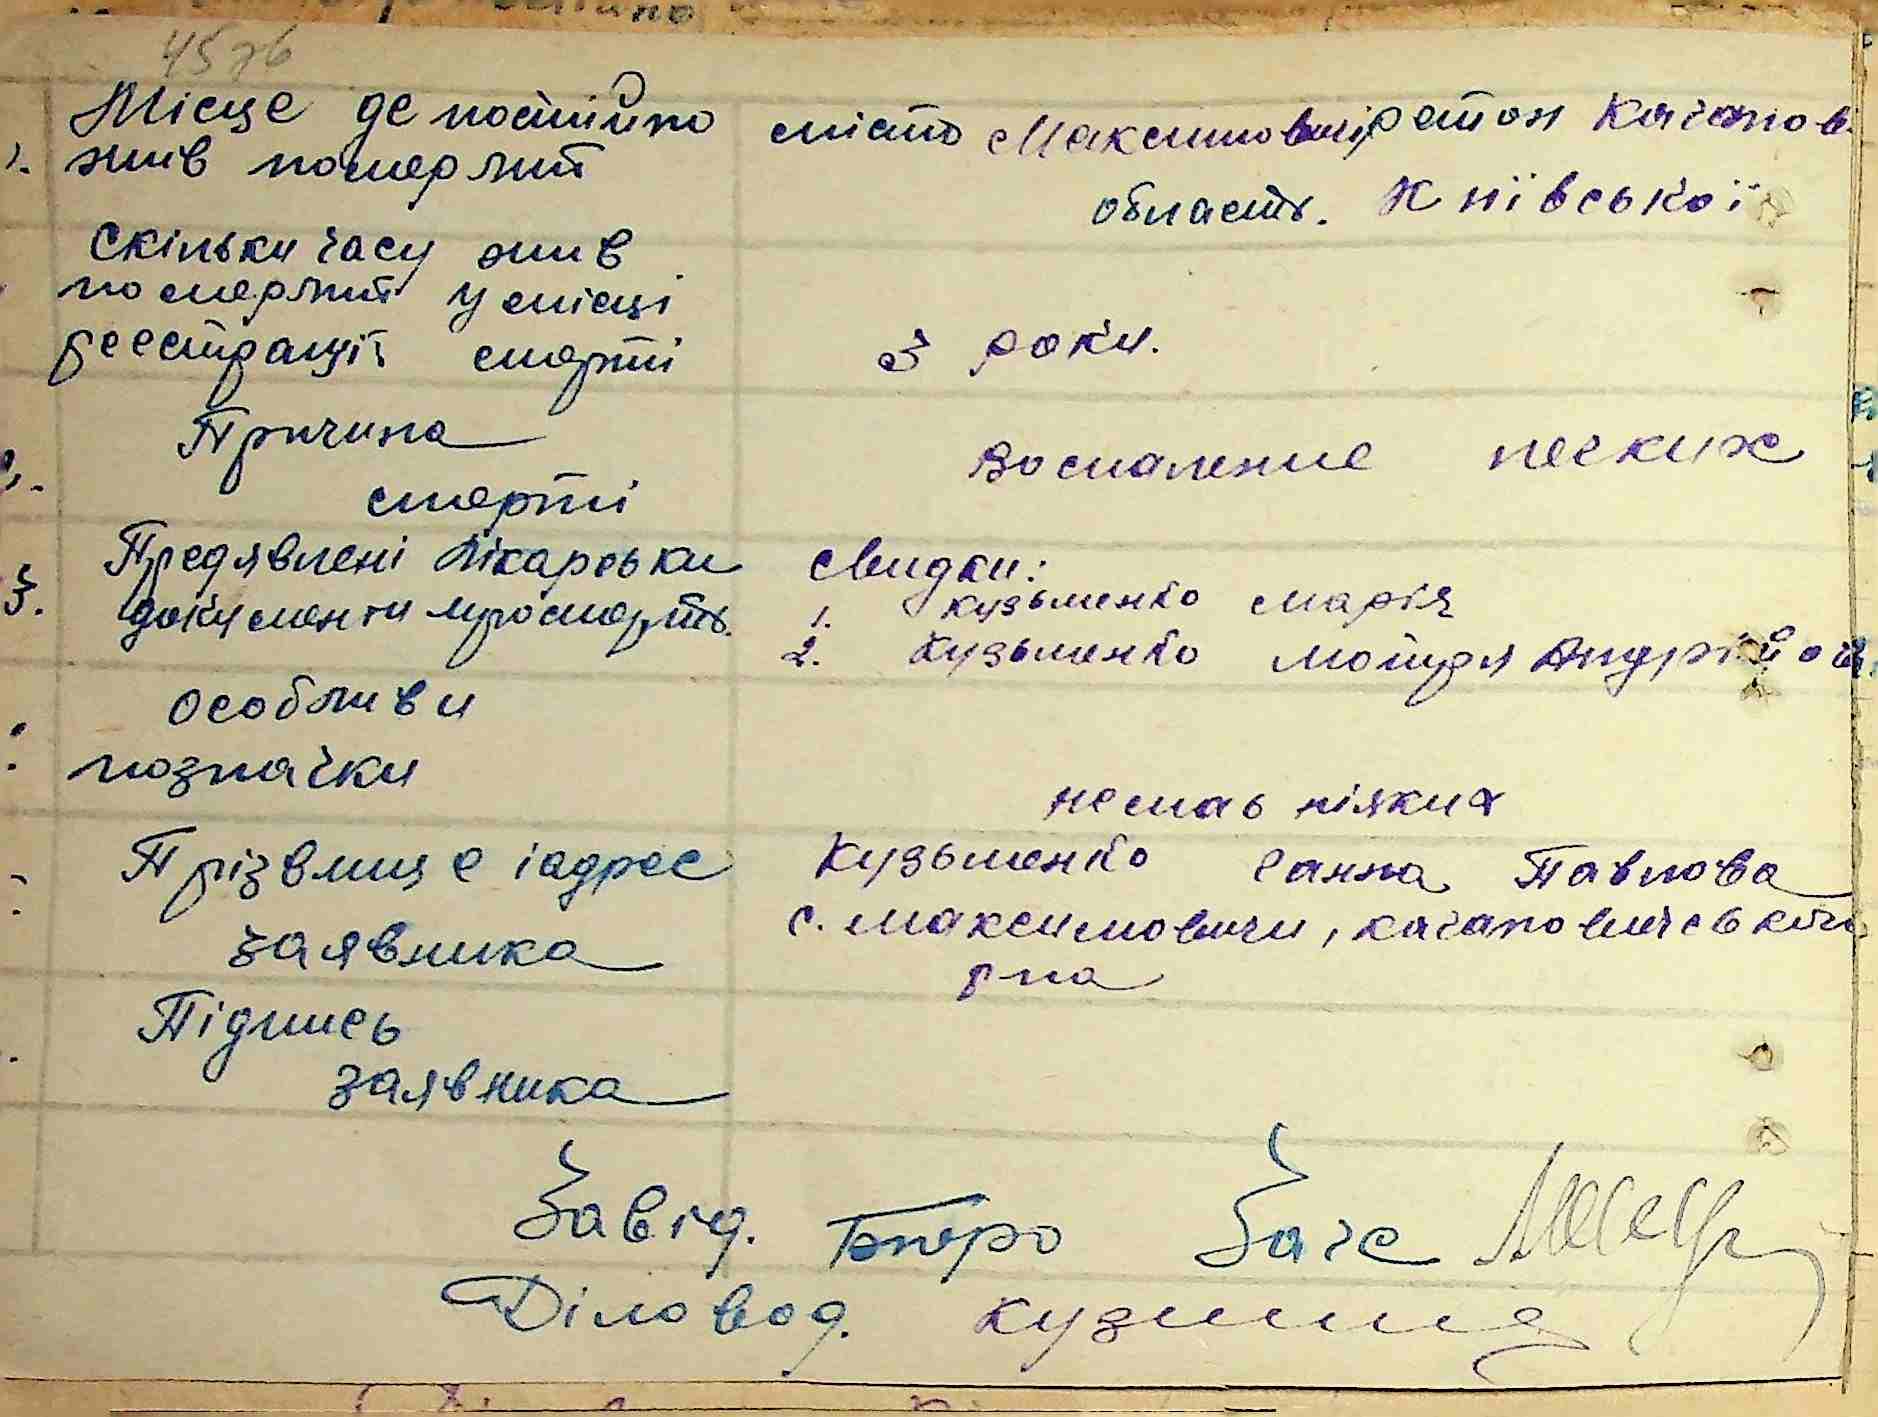 Місце де постійно
жив померлий
місто Максимовичі, район Каганов.
область. Київської
Скільки часу жив
померлий у місці
реєстрації смерті
3 роки.
Причина
смерті
воспаление легких
Предявлені лікарськи
документи про смерть.
свидки:
1. Кузьменко Марія
2. Кузьменко Мотря Андрійов.
3.
особливи
позначки
немає ніяких
Прізвище і адрес
заявника
Кузьменко Ганна Павлова
с. Максимовичи, Кагановичського
р-на
Підпись
заявника
Завід. Бюро Загс
Діловод.